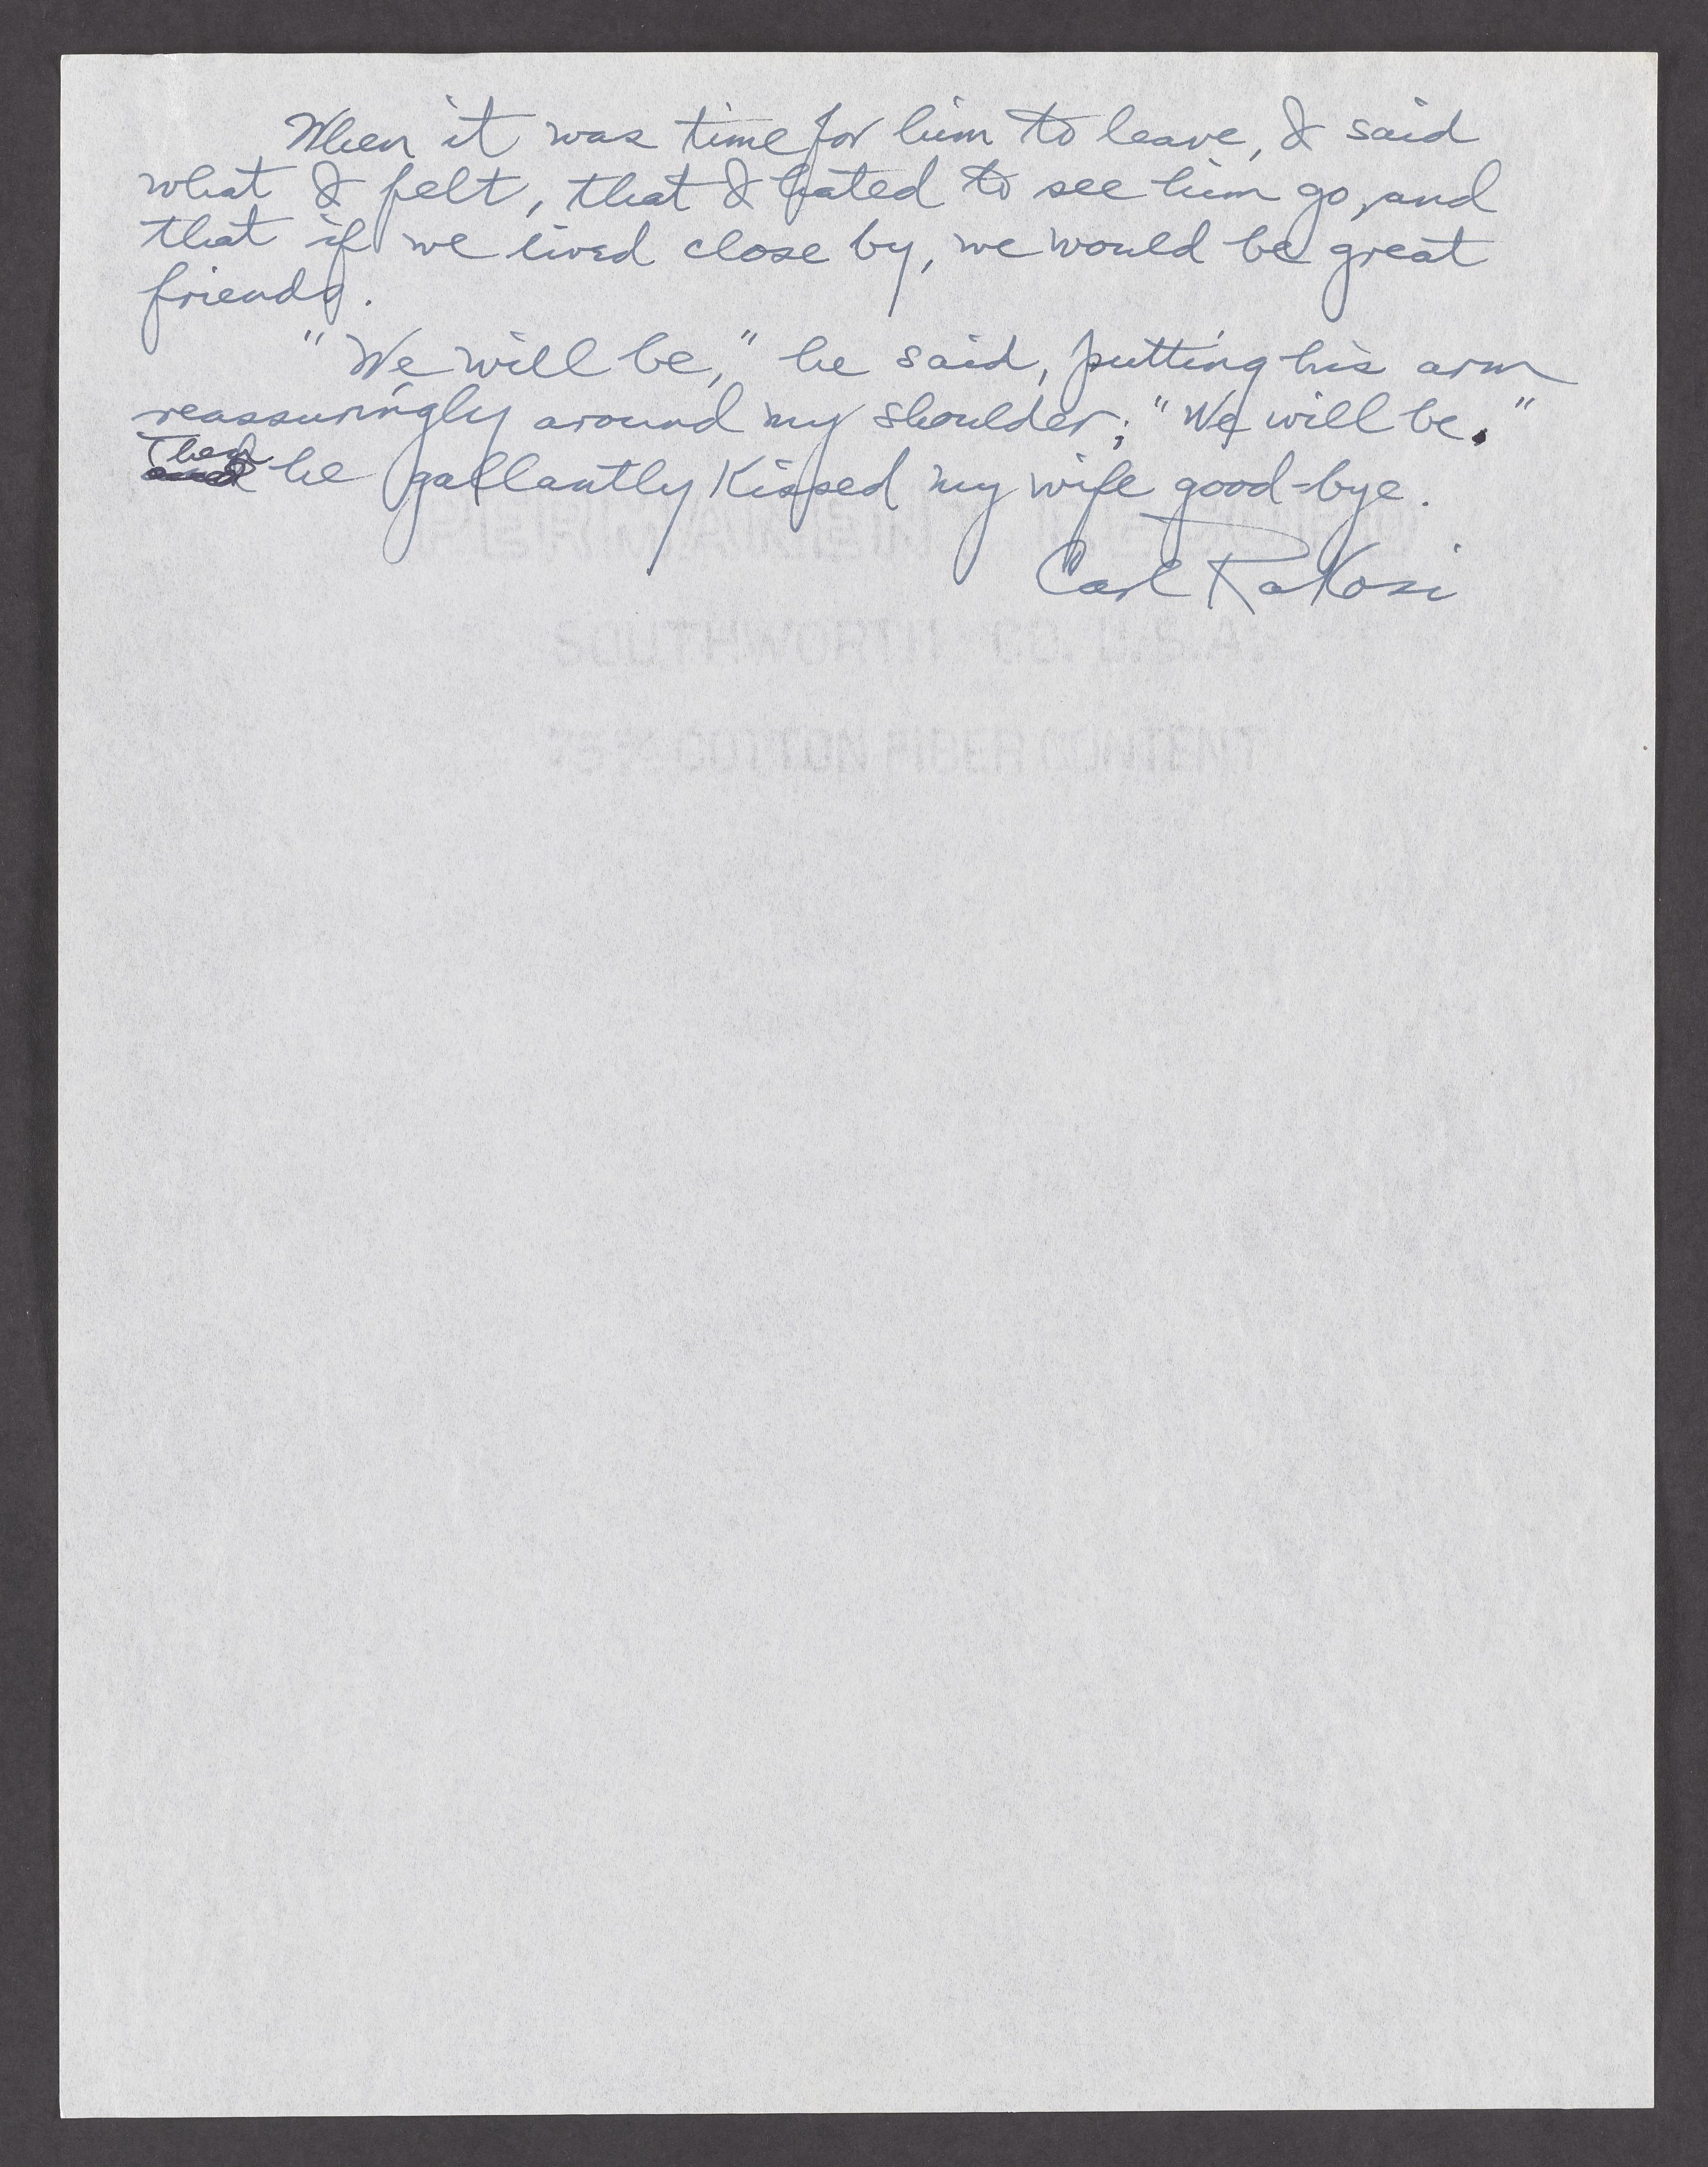 When it was time for him to leave, I said
what I felt, that I hated to see him go, and
that if we lived close by, we would be great
friends.
"We will be," he said, putting his arm
reassuringly around my shoulder; "We will be."
Then
and he gallantly kissed my wife good-bye.
Carl Rakosi
PERMANENT RECORD
SOUTHWORTH CO. U.S.A.
75% COTTON FIBER CONTENT